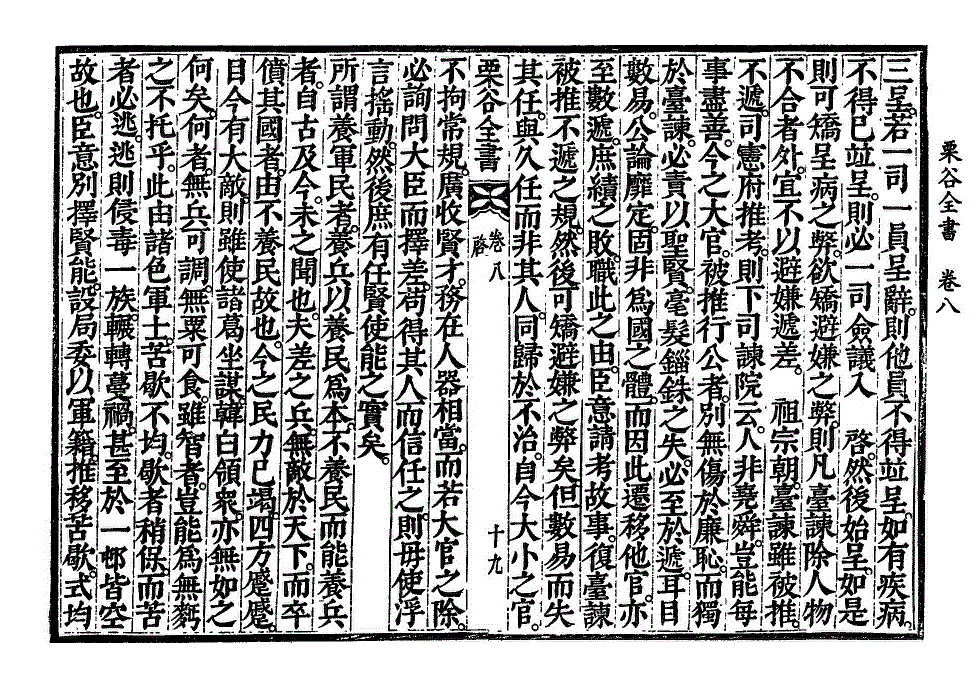 栗谷全書　卷八
三呈。若一司一員呈辭。則他員不得竝呈。如有疾病。
不得已竝呈。則必一司僉議入　啓。然後始呈。如是
則可矯呈病之弊。欲矯避嫌之弊。則凡臺諫除人物
不合者外。宜不以避嫌遞差。　祖宗朝。臺諫雖被推
不遞。司憲府推考。則下司諫院云。人非堯舜。豈能每
事盡善。今之大官。被推行公者。別無傷於廉恥。而獨
於臺諫。必責以聖賢。毫髮錙銖之失。必至於遞。耳目
數易。公論靡定。固非爲國之體。而因此遷移他官。亦
至數遞。庶績之敗。職此之由。臣意請考故事。復臺諫
被推不遞之規。然後可矯避嫌之弊矣。但數易而失
其任。與久任而非其人。同歸於不治。自今大小之官。
栗谷全書　卷八　啓　十九
不拘常規。廣收賢才。務在人器相當。而若大官之除。
必詢問大臣而擇差。苟得其人而信任之。則毋使浮
言搖動。然後庶有任賢使能之實矣。
所謂養軍民者。養兵以養民爲本。不養民而能養兵
者。自古及今。未之聞也。夫差之兵無敵於天下。而卒
僨其國者。由不養民故也。今之民力已竭。四方蹙蹙。
目今有大敵。則雖使諸葛坐謀。韓白領衆。亦無如之
何矣。何者。無兵可調。無粟可食。雖智者。豈能爲無麪
之不托乎。此由諸色軍士。苦歇不均。歇者稍保。而苦
者必逃。逃則侵毒一族。輾轉蔓禍。甚至於一邨皆空
故也。臣意別擇賢能。設局委以軍籍。推移苦歇。式均